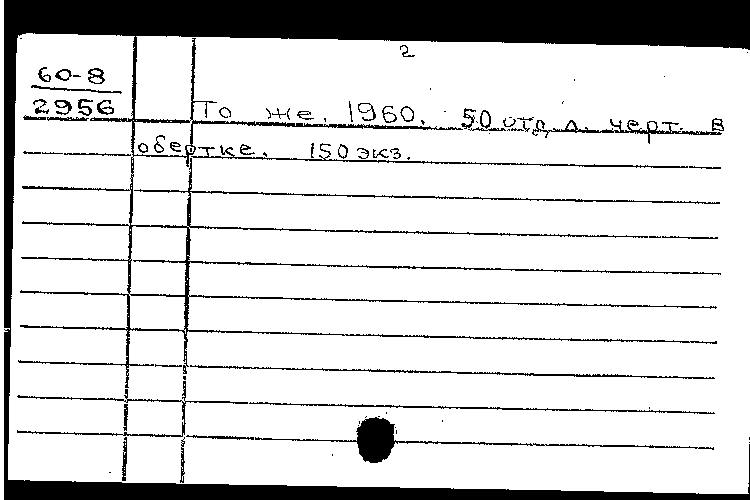 2
60-8
2956
То же. 1960. 50 отд. л. черт. в
обертке. 150 экз.